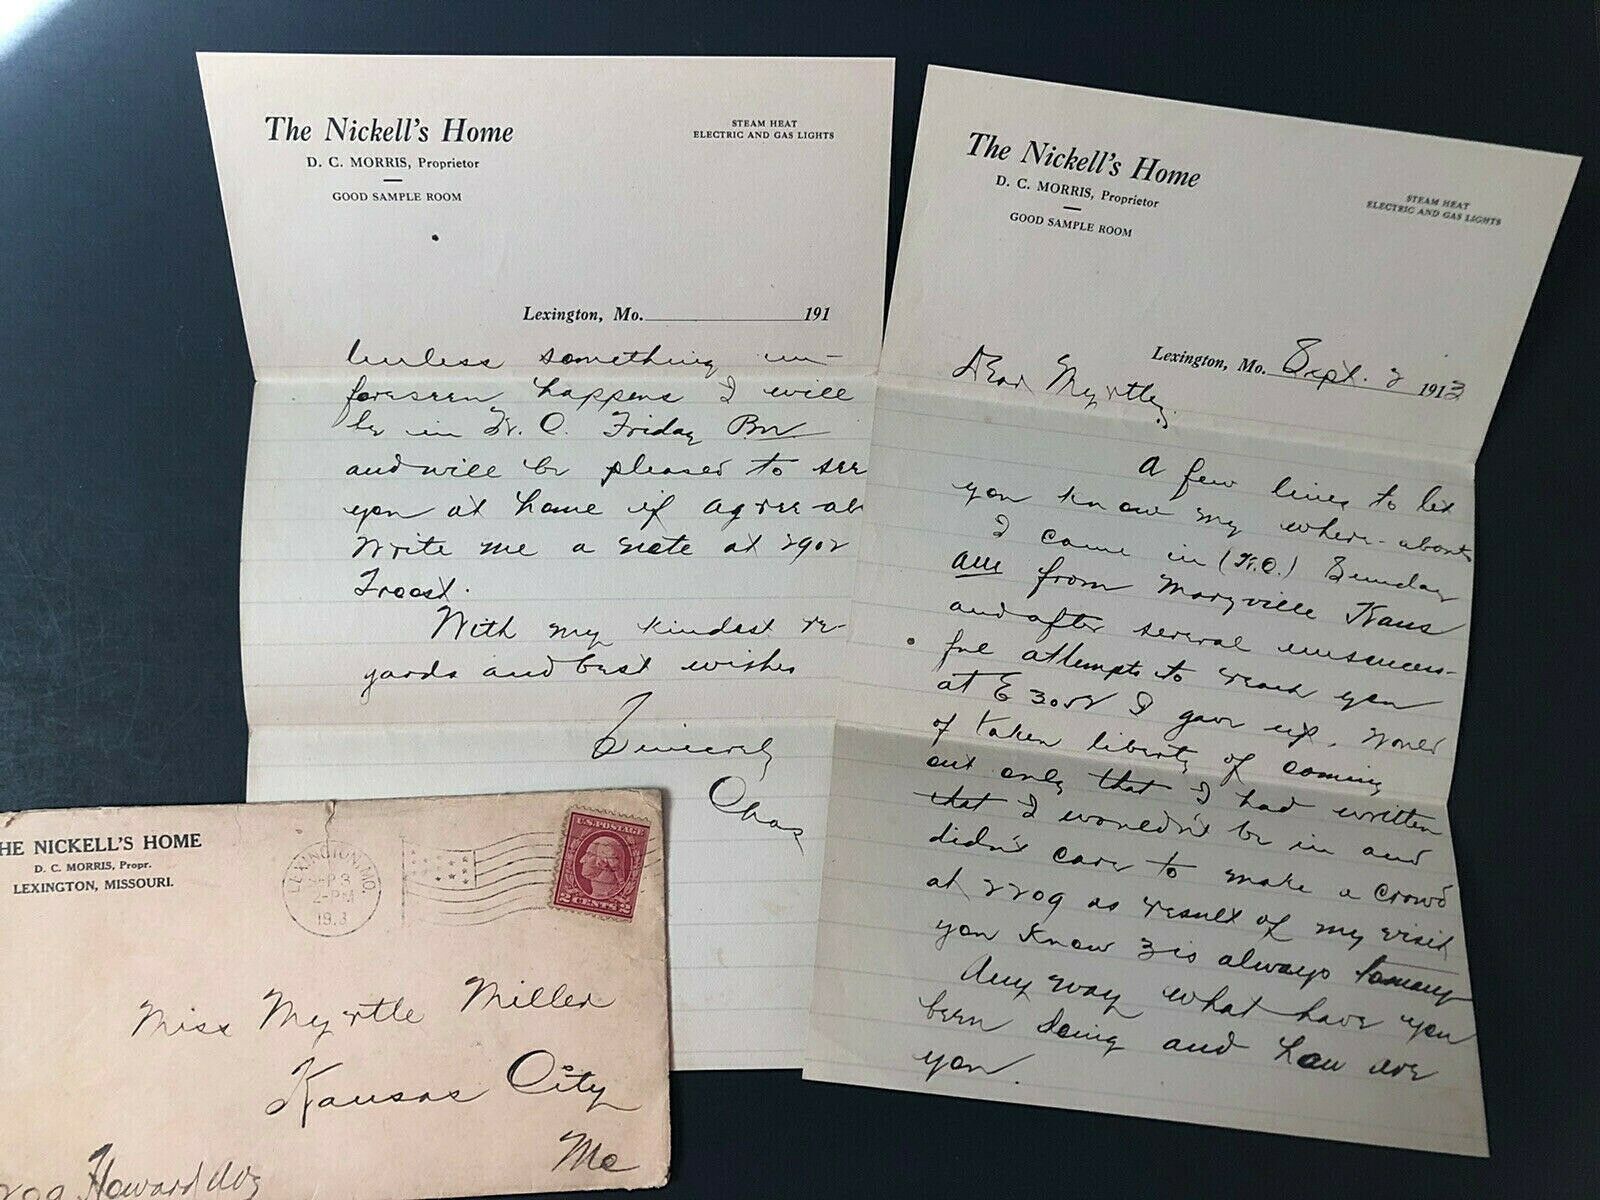 The Nickell's Home
D. C. MORRIS, Proprietor
GOOD SAMPLE ROOM
STEAM HEAT
ELECTRIC AND GAS LIGHTS
Lexington, Mo. Sept. 2 1913
Dear Myrtle,
A few lines to let
you know my where-abouts
I came in (K.C.) Sunday
from Marysville Kans
and after several unsuccess-
ful attempts to reach you
at E 3052 I gave up. Would
of taken liberty of coming
out only that I had written
that I wouldn't be in and
didn't care to make a crowd
at 2209 as result of my visit
you know 3 is always to many
Any way what have you
been doing and how are
you.
The Nickell's Home
D. C. MORRIS, Proprietor
GOOD SAMPLE ROOM
STEAM HEAT
ELECTRIC AND GAS LIGHTS
Lexington, Mo. 191
Unless something un-
foreseen happens I will
be in K. C. Friday PM
and will be pleased to see
you at home if agree-ab
Write me a note at 2902
Troost.
With my kindest re-
gards and best wishes
Sincerely
Chas
HE NICKELL'S HOME
D. C. MORRIS, Propr.
LEXINGTON, MISSOURI.
LEXINGTON, MO.
SEP 3
2-PM
1913
U.S. POSTAGE
2 CENTS 2
Miss Myrtle Miller
Kansas City
Mo
209 Howard Ave